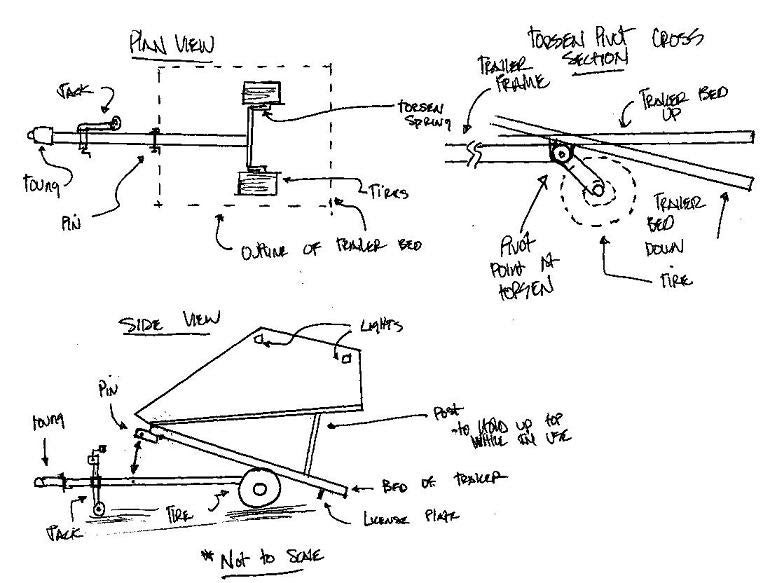 PLAN VIEW
JACK
TOUNG
PIN
TORSEN
SPRING
TIRES
OUTLINE OF TRAILER BED
TORSEN PIVOT CROSS
SECTION
TRAILER
FRAME
TRAILER BED
UP
PIVOT
POINT AT
TORSEN
TRAILER
BED
DOWN
TIRE
SIDE VIEW
LIGHTS
PIN
TOUNG
POST
-TO HOLD UP TOP
WHILE IN USE
BED OF TRAILER
LICENSE PLATE
JACK
TIRE
* NOT TO SCALE